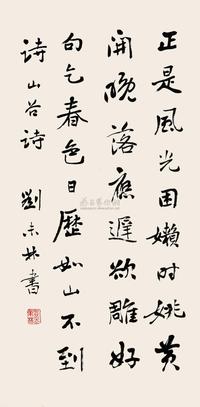 正是風光困嬾时姚黄
開晚落應遲欲雕好
句乞春色日歷如山不到
诗山谷诗 劉末林書